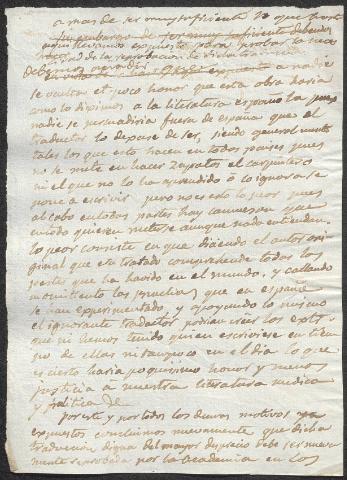 a mas de ser muy suficiente lo que hasta
aqui llevamos expuesto para probar la nece
sidad de la reprobacion de dicha
debemos añadir a nadie
se oculta el poco honor que esta obra daria
como lo diximos a la literatura española pues
nadie se persuadiria fuera de españa que el
traductor lo dexase de ser, siendo generalmente
tales los que esto hacen en todos paises pues
no se mete en hacer zapatos el carpintero
ni el que no lo ha aprendido o lo ignora se
pone a escrivir, pero no es esto lo peor pues
al cabo en todas partes hay que
en todo quieren meterse aunque nada entiendan.
lo peor consiste en que diciendo el autor ori
ginal que su tratado comprehende todas las
pestes que ha havido en el mundo, y callando
las que en españa
se han experimentado, y apoyando lo mismo
el ignorante traductor podian creer los extran
que ni hemos tenido quien escriviese en tiem
po de ellas ni tampoco en el dia lo que
es cierto haria poquissimo honor y menos
justicia a nuestra literatura medica
y politica
por este y por todos los demas motivos ya
expuestos concluimos nuevamente que dicha
traduccion digna del mayor desprecio debe ser nueva
mente reprobada por la Academia en los